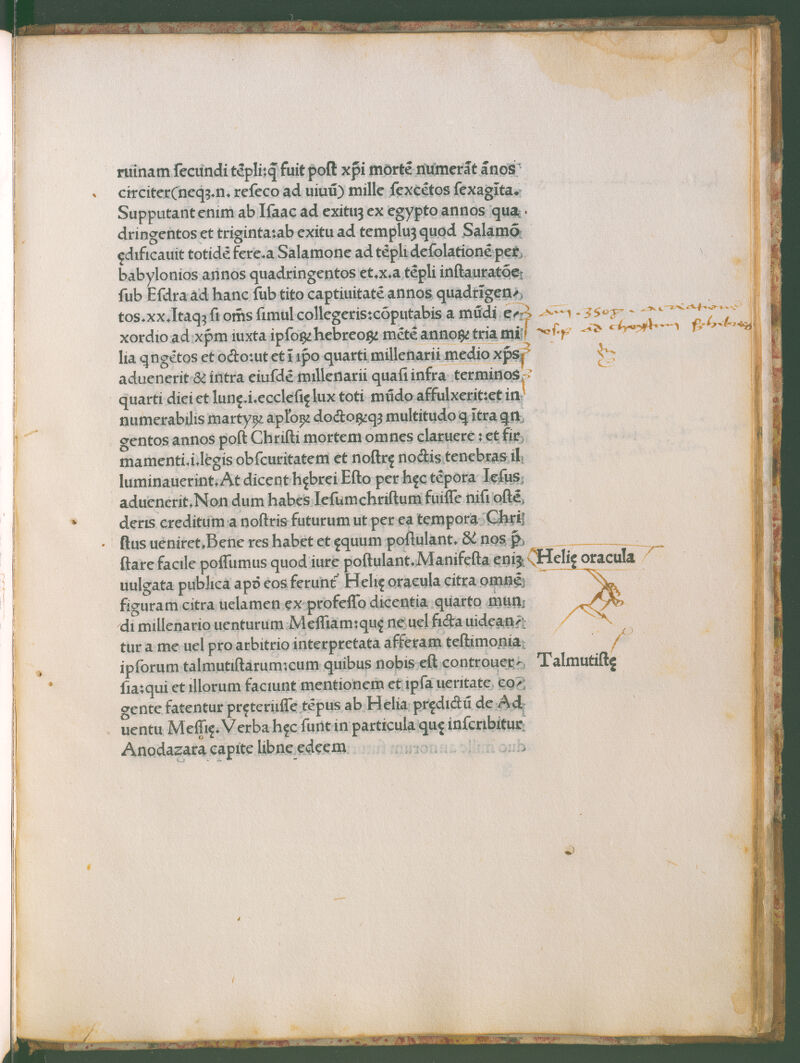 ruinam ſecundi tẽpli:q̃ fuit poſt xp̃i mortẽ numerãt ãnos
circiter(neqꝫ.n. reſeco ad uiuũ) mille ſexcẽtos ſexagĩta.
Supputant enim ab Iſaac ad exituꝫ ex egypto annos qua
dringentos et triginta:ab exitu ad templuꝫ quod Salamõ
ędificauit totidẽ fere.a Salamone ad tẽpli deſolationẽ per
babylonios annos quadringentos et.x.a tẽpli inſtauratõe
ſub Eſdra ad hanc ſub tito captiuitatẽ annos quadrĩgen⸗
tos.xx.Itaqꝫ ſi om̃s ſimul collegeris:cõputabis a mũdi e⸗
xordio ad xp̃m iuxta ipſoꝝ hebreoꝝ mẽtẽ annoꝝ tria mi
lia qngẽtos et octo:ut et ĩ ip̃o quarti millenarii medio xp̃s
aduenerit & intra eiuſdẽ millenarii quaſi infra terminos
quarti diei et lunę.i.eccleſię lux toti mũdo affulxerit:et in
numerabilis martyꝝ apl̃oꝝ doctoꝝqꝫ multitudo q ĩtra qn
gentos annos poſt Chriſti mortem omnes claruere : et fir
mamenti.i.legis obſcuritatem et noſtrę noctis tenebras il
luminauerint.At dicent hębrei Eſto per hęc tẽpora Ieſus
aduenerit.Non dum habes Ieſumchriſtum fuiſſe niſi oſtẽ
deris creditum a noſtris futurum ut per ea tempora Chri
ſtus ueniret.Bene res habet et ęquum poſtulant. & nos p̃
ſtare facile poſſumus quod iure poſtulant.Manifeſta eniꝫ
Helię oracula
uulgata publica apõ eos ferunt̃ Helię oracula citra omnẽ
figuram citra uelamen ex profeſſo dicentia quarto mun
di millenario uenturum Meſſiam:quę ne uel ficta uidean⸗
tur a me uel pro arbitrio interpretata afferam teſtimonia
ipſorum talmutiſtarum:cum quibus nobis eſt controuer⸗
Talmutiſtę
ſia:qui et illorum faciunt mentionem et ipſa ueritate co⸗
gente fatentur pręteriiſſe tẽpus ab Helia prędictũ de Ad
uentu Meſſię.Verba hęc ſunt in particula quę inſcribitur
Anodazara capite libne edeem